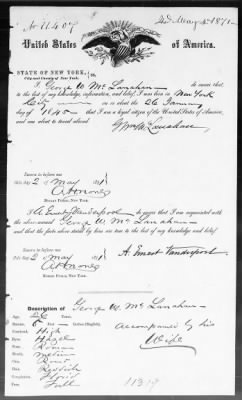 No 11407
2d May 2 1871
United States of America.
STATE OF NEW YORK,
City and County of New York.
I, George W. McLanahan do swear that
to the best of my knowledge, information, and belief I was born in New York
City on or about the 26 January
day of 1845 that I am a loyal citizen of the United States of America,
and am about to travel abroad.
Sworn to before
me this day 2 of May 1871
NOTARY PUBLIC, NEW YORK.
I A. Ernest Vanderpoel do swear that I am acquainted with the
above-named George W. McLanahan
and that the facts above stated by him are true to the best of my knowledge and belief.
A. Ernest Vanderpoel
Sworn to before
me this day 2 of May 1871
NOTARY PUBLIC, NEW YORK.
Description of George W. McLanahan
Age, 26 Years.
Stature, 5 Feet Inches (English).
Forehead, High
Eyes, Hazel
Nose, Roman
Mouth, Medium
Chin, Round
Hair, Reddish
Complexion, Florid
Face, Full
Accompanied by his
Wife